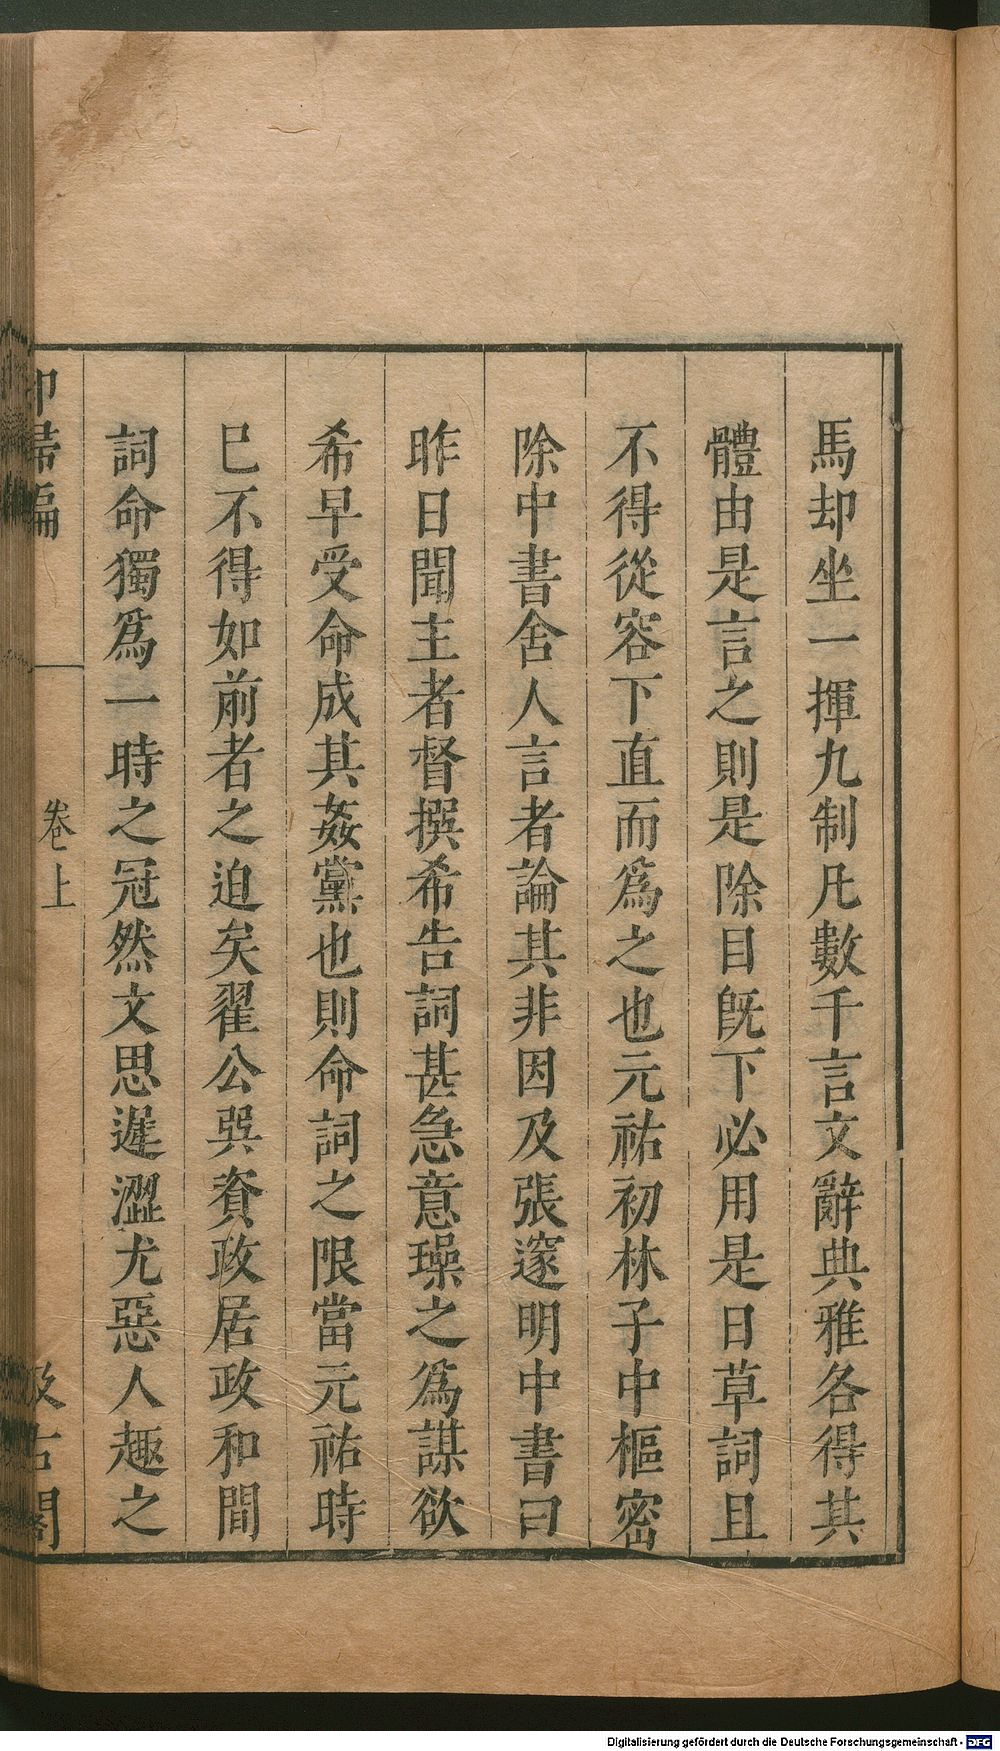 馬却坐一揮九制凡數千言文辭典雅各得其
體由是言之則是除目旣下必用是日草詞且
不得從容下直而爲之也元祐初林子中樞密
除中書舍人言者論其非因及張邃明中書曰
昨日聞主者督撰希告詞甚急意璪之爲謀欲
希早受命成其姦黨也則命詞之限當元祐時
巳不得如前者之迫矣翟公巽資政居政和間
詞命獨爲一時之冠然文思遲澀尤惡人趣之
却掃編
卷上
汲古閣
Digitalisierung gefördert durch die Deutsche Forschungsgemeinschaft - DFG